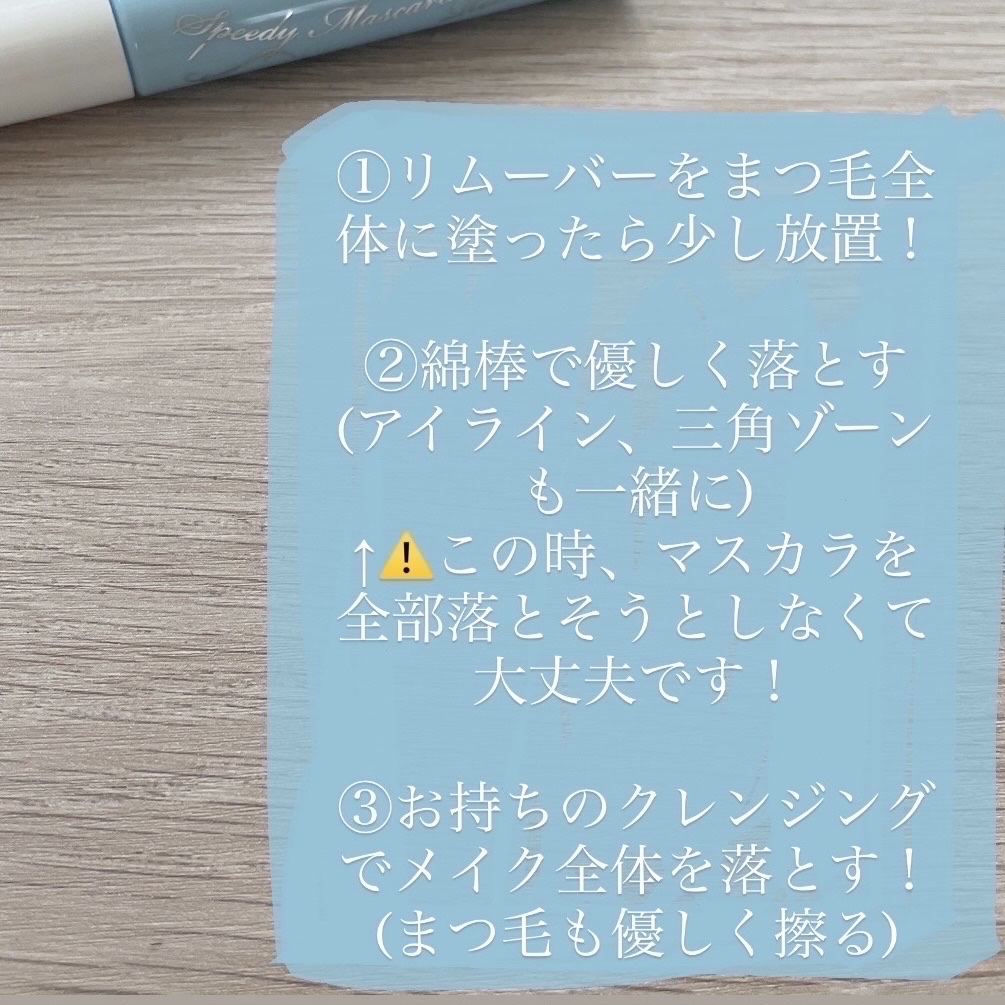 Speedy Mascara
①リムーバーをまつ毛全
体に塗ったら少し放置！
②綿棒で優しく落とす
(アイライン、三角ゾーン
も一緒に)
↑⚠️この時、マスカラを
全部落とそうとしなくて
大丈夫です！
③お持ちのクレンジング
でメイク全体を落とす！
(まつ毛も優しく擦る)